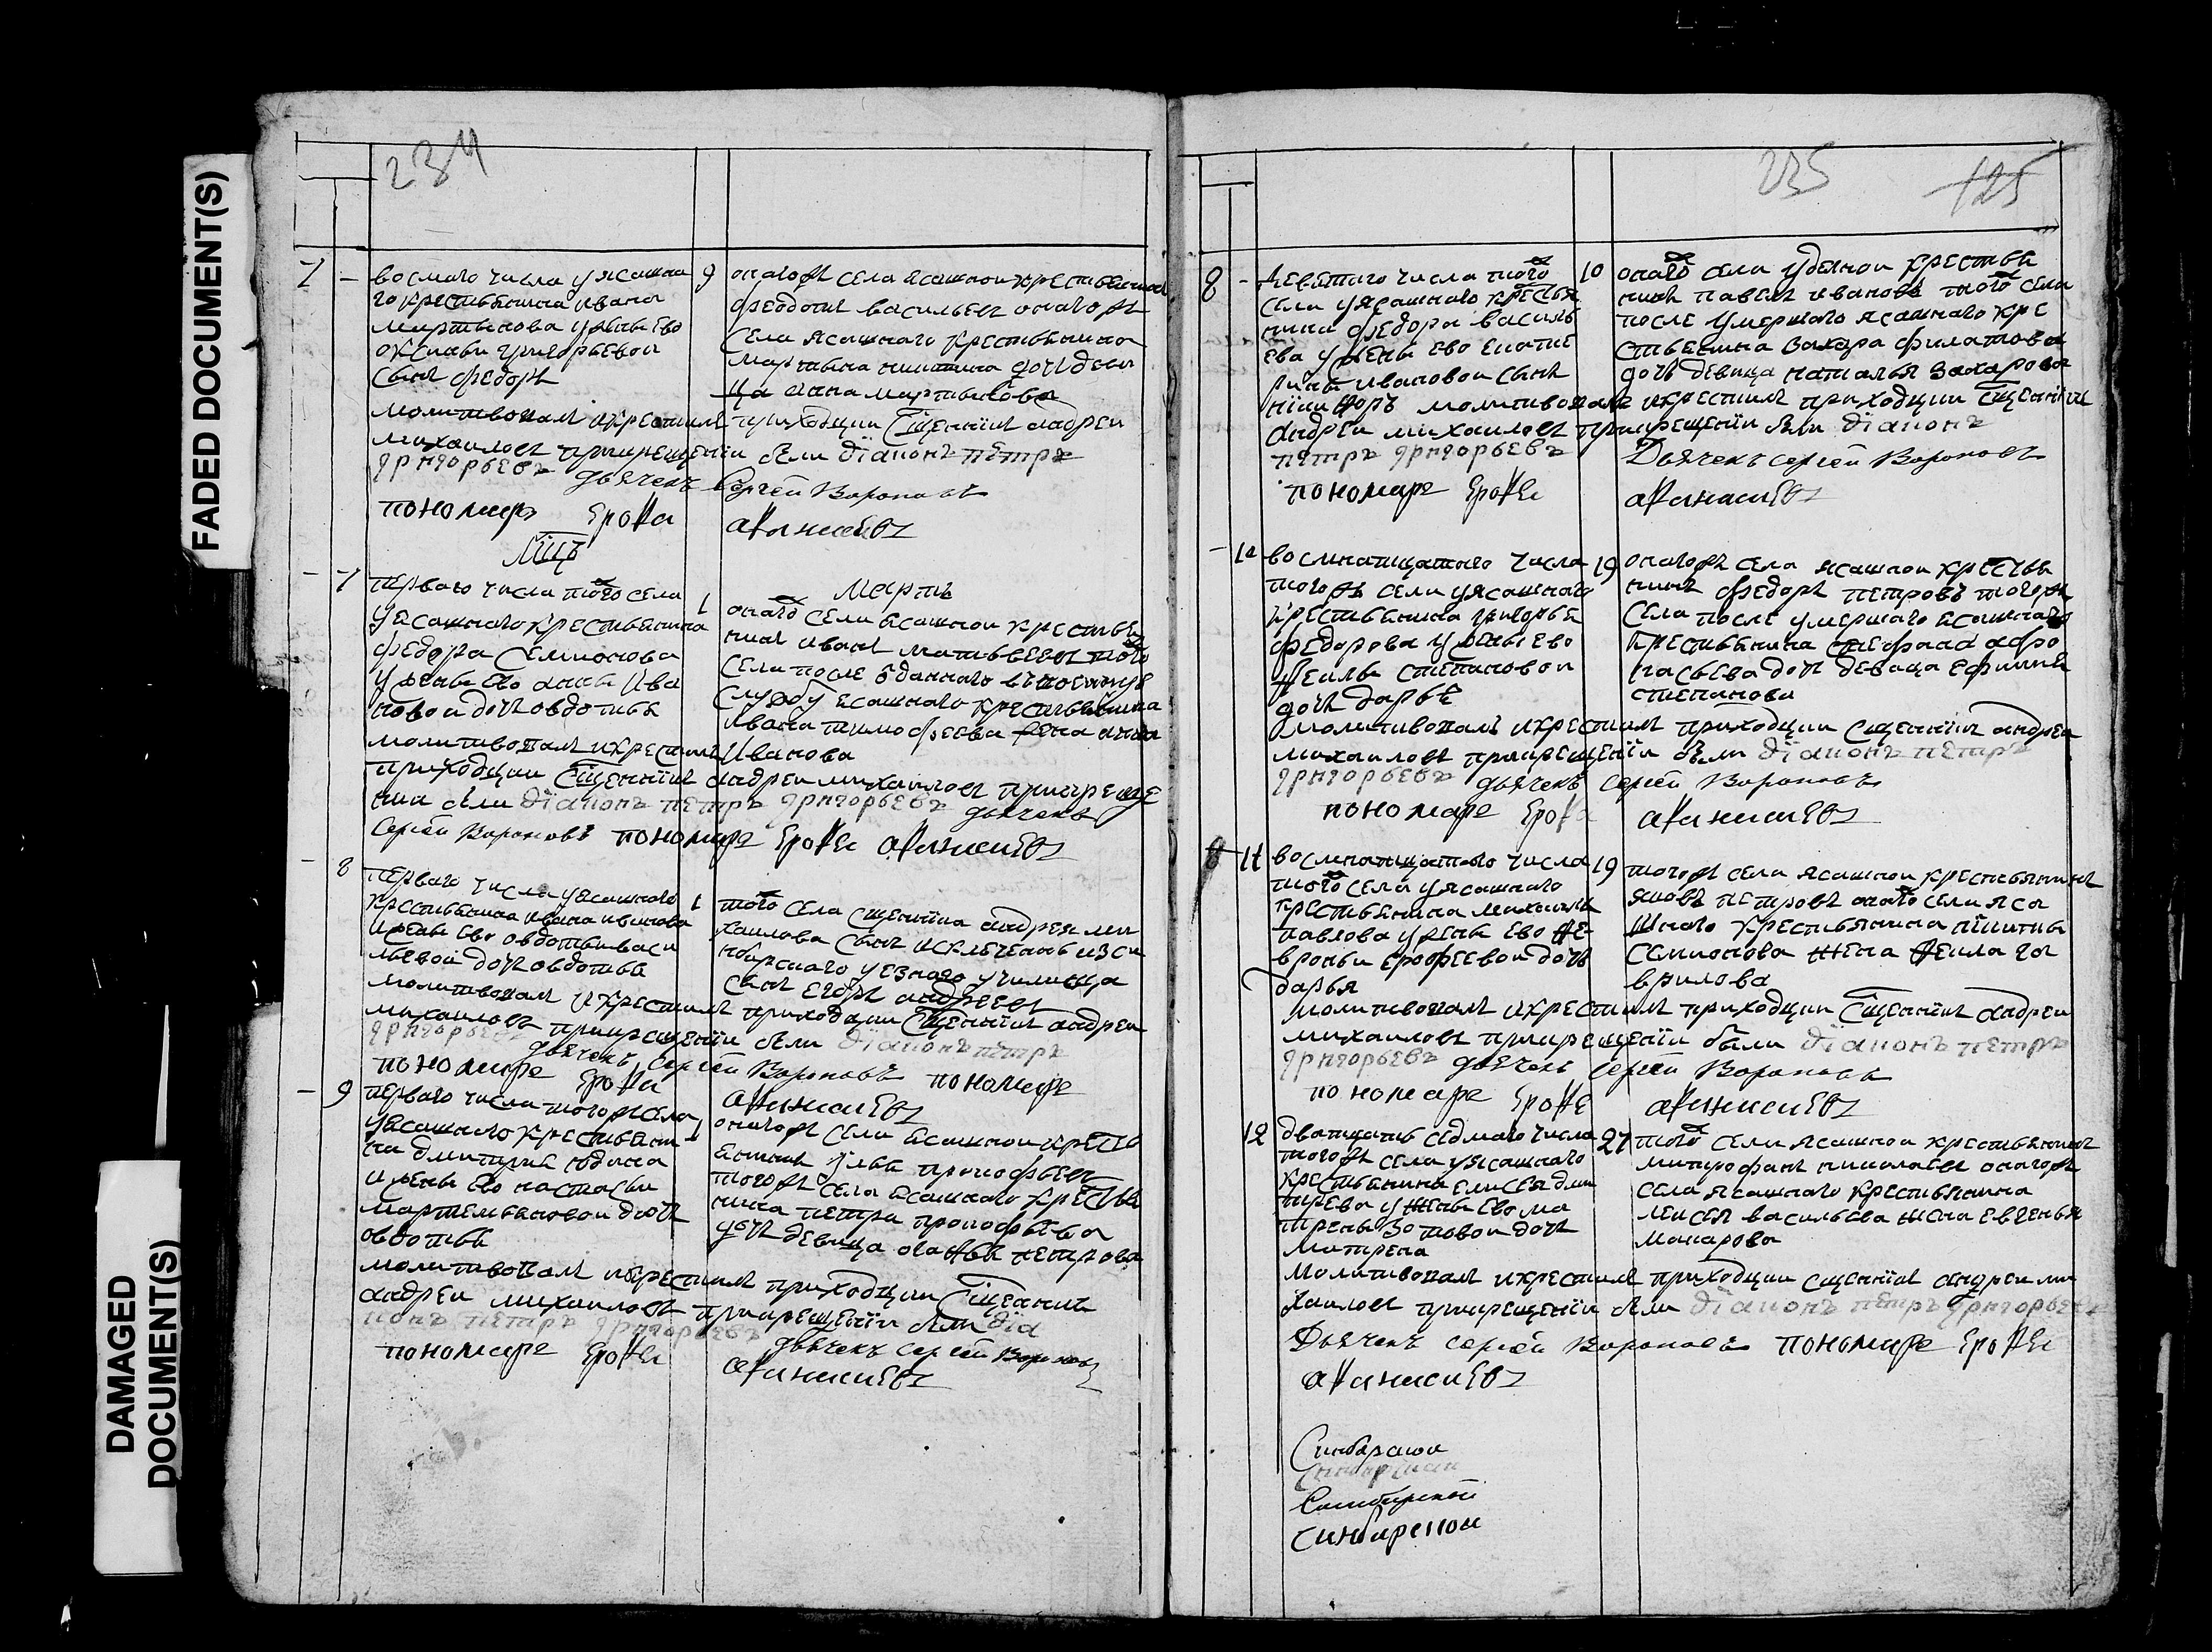 FADED DOCUMENT(S)
DAMAGED
DOCUMENT(S)
234
7 - восмаго числа у ясашна
го крестьянина ивана
мартынова у жены ево
оксиньи григорьевои
сынъ федоръ
9 онагожъ села ясашнои крестьянинъ
федотъ васильевъ онагожъ
села ясашнаго крестьянина
мартына никитина дочь деви
ца анна мартынова
молитвовалъ и крестилъ приходции сщеннікъ андреи
михаиловъ прикрещеніи были діаконъ петръ
григорьевъ дьячекъ Сергей Вороновъ
пономарь Ерофеи афанасиевъ
Мцъ
Мартъ
7 перваго числа тогожъ села
у ясашнаго крестьянина
федора Семионова
у жены ево анны ива
новои дочь овдотья
1 онагожъ села ясашнои крестья
нинъ иванъ матвеевъ тогожъ
села после отданнаго въ военную
службу ясашнаго крестьянина
ивана тимофеева жена анна
Иванова
молитвовалъ и крестилъ
приходции Сщеннікъ андреи михаиловъ прикреще
нии были діаконъ петръ григорьевъ дьячекъ
Сергей Вороновъ пономарь Ерофеи афанасиевъ
8 перваго числа у ясашнаго
крестьянина ивана иванова
у жены ево овдотьи васи
льевой дочь овдотья
1 тогожъ села сщенніка андрея ми
хаилова сынъ исключенъ изъ си
нбирскаго уезнаго училища
сынъ егоръ андреевъ
молитвовалъ и крестилъ приходции Сщеннікъ андреи
михаиловъ прикрещеніи были діаконъ петръ
григорьевъ дьячекъ Сергей Вороновъ пономарь
пономарь Ерофеи афанасиевъ
9 перваго числа тогожъ села
у ясашнаго крестьяни
на дмитрия юдина
у жены ево настасьи
мартемьяновои дочь
овдотья
1 онагожъ села ясашнои кресть
янинъ илья прокофьевъ
тогожъ села ясашнаго крестья
нина петра прокофьева
дочь девица петрова
молитвовалъ и крестилъ приходции Сщеннікъ
андреи михаиловъ прикрещеніи были діа
конъ петръ григорьевъ
дьячекъ Сергей Вороновъ
пономарь Ерофеи афанасиевъ
235 125
8 - девятаго числа тогожъ
села у ясашнаго крестья
нина федора василь
ева у жены ево екате
рины ивановои сынъ
никифоръ
10 онагожъ села удельнои крестья
нинъ павелъ ивановъ тогожъ села
после умершаго ясашнаго кре
стьянина захара филатова
дочь девица наталья захарова
молитвовалъ и крестилъ приходции Сщеннікъ
андреи михаиловъ прикрещеніи были діаконъ
петръ григорьевъ Дьячекъ Сергей Вороновъ
пономарь Ерофеи афанасиевъ
10 восмнатцатаго числа
тогожъ села у ясашнаго
крестьянина григорья
федорова у жены ево
степановои
дочь дарья
19 онагожъ села ясашнои крестья
нинъ федоръ петровъ тогожъ
села после умершаго ясашнаго
крестьянина стефана афо
насьева дочь девица ефимия
степанова
молитвовалъ и крестилъ приходции Сщеннікъ андреи
михаиловъ прикрещеніи были діаконъ петръ
григорьевъ дьячекъ Сергей Вороновъ
пономарь Ерофеи афанасиевъ
11 восмнатцатого числа
тогожъ села у ясашнаго
крестьянина михаилы
павлова у жены ево фе-
вроньи ерофеевои дочь
дарья
19 тогожъ села ясашнои крестьянинъ
яковъ петровъ онагожъ села яса
шнаго крестьянина никиты
Семионова жена га
врилова
молитвовалъ и крестилъ приходции Сщеннікъ андреи
михаиловъ прикрещеніи были діаконъ петръ
григорьевъ дьячекъ Сергей Вороновъ
пономарь Ерофеи афанасиевъ
12 дватцать седмаго числа
тогожъ села у ясашнаго
крестьянина елисея дми
триева у жены ево ма
трены зотовои дочь
матрена
27 тогожъ села ясашнои крестьянинъ
митрофанъ николаевъ онагожъ
села ясашнаго крестьянина
васильева жена евгенья
макарова
молитвовалъ и крестилъ приходции сщеннікъ андреи ми
хаиловъ прикрещеніи были діаконъ петръ григорьевъ
Дьячекъ Сергей Вороновъ пономарь Ерофеи
афанасиевъ
Синбирскои
Синбирскои
Симбирской
Синбирскои